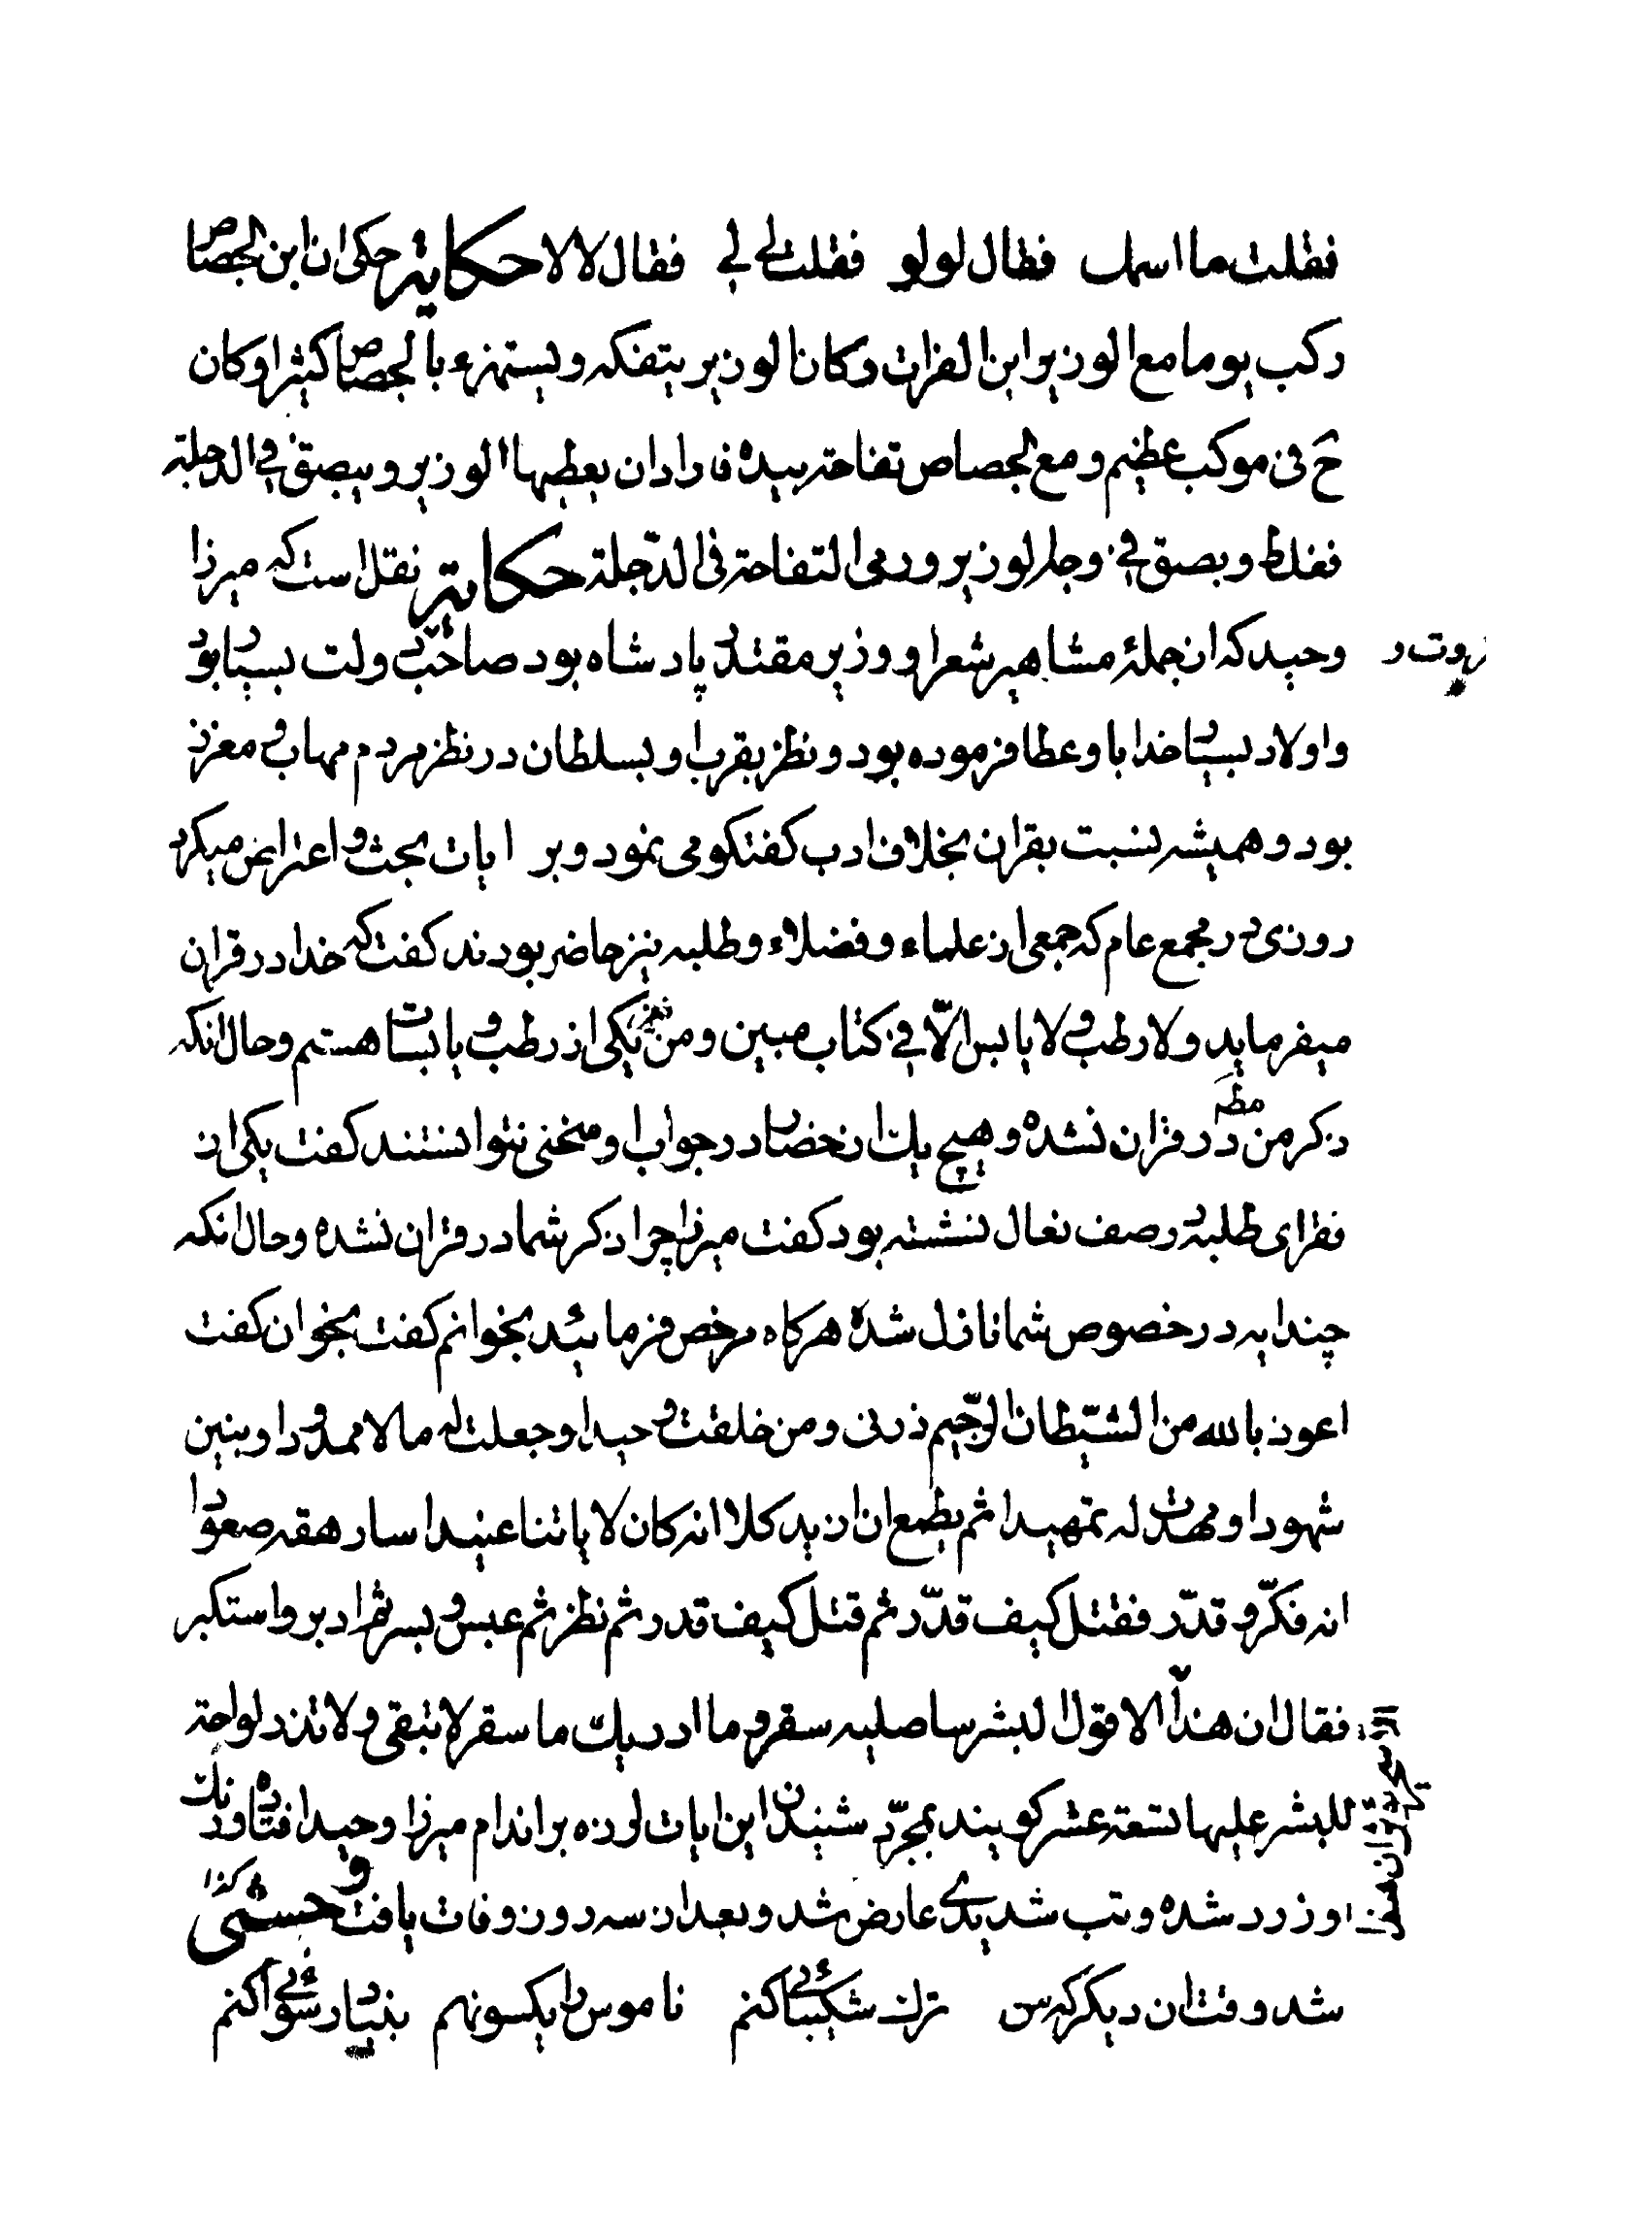 فقلت ما اسمك فقال لولو فقلت لی لی فقال لا لا حکایة حکی ان ابن الجصاص
رکب یوما مع الوزیر ابن الفرات و کان الوزیر یتفکه و یستهزء بالجصاص کثیرا و کان
ح فی موکب عظیم و مع الجصاص تفاحة بیده فاراد ان یعطیها الوزیر و یبصق فی الدجلة
فغلط و بصق فی وجه الوزیر و رمی التفاحة فی الدّجلة حکایة نقل است که میرزا
وحید که از جملۀ مشاهیر شعرا و وزیر مقتدر پادشاه بود صاحب ثروت و دولت بسیار بود
و اولاد بسیار خدا باو عطا فرموده بود و نظر بقرب او بسلطان در نظر مردم مهاب و معزز
بود و همیشه نسبت بقران بخلاف ادب کفتکو می نمود و بر ایات بحث و اعتراض میکرد
روزی در مجمع عام که جمعی از علماء و فضلاء و طلبه نیز حاضر بودند کفت که خدا در قران
میفرماید و لا رطب و لا یابس الّا فی کتاب مبین و من نیز یکی از رطب و یابسات هستم و حال انکه
ذکر من در قران نشده و هیچ یك از حضار در جواب او سخنی نتوانستند کفت یکی از
فقرای طلبه در صف نعال نشسته بود کفت میرزا چرا ذکر شما در قران نشده و حال انکه
چند ایه در خصوص شما نازل شده هرکاه مرخص فرمائید بخوانم کفت بخوان کفت
اعوذ بالله من الشّیطان الرّجیم ذرنی و من خلقت وحیدا و جعلت له مالا ممدودا و بنین
شهودا و مهدت له تمهیدا ثم یطمع ان ازید کلا انه کان لایاتنا عنیدا سارهقه صعودا
انه فکّر و قدّر فقتل کیف قدّر ثم قتل کیف قدر ثم نظر ثم عبس و بسر ثم ادبر و استکبر
فقال ان هذا الا قول البشر ساصلیه سقر و ما ادریك ما سقر لا تبقی و لا تذر لواحة
للبشر علیها تسعة عشر کویند بمجرّد شنیدن این ایات لرزه بر اندام میرزا وحید افتاده و رنك
او زرد شده و تب شدیدی عارض شد و بعد از سه روز وفات یافت وحشی کذا
شد وقت ان دیکر که من ترك شکیبائی کنم ناموس را یکسو نهم بنیاد رسوائی کنم